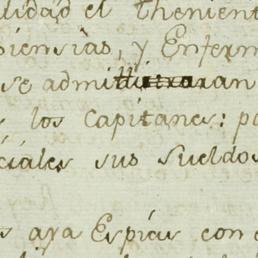 lidad el thenient
siensias, y Enferm
se admittiran
los Capitanes: po
ciales sus sueldos
s aya Espias con